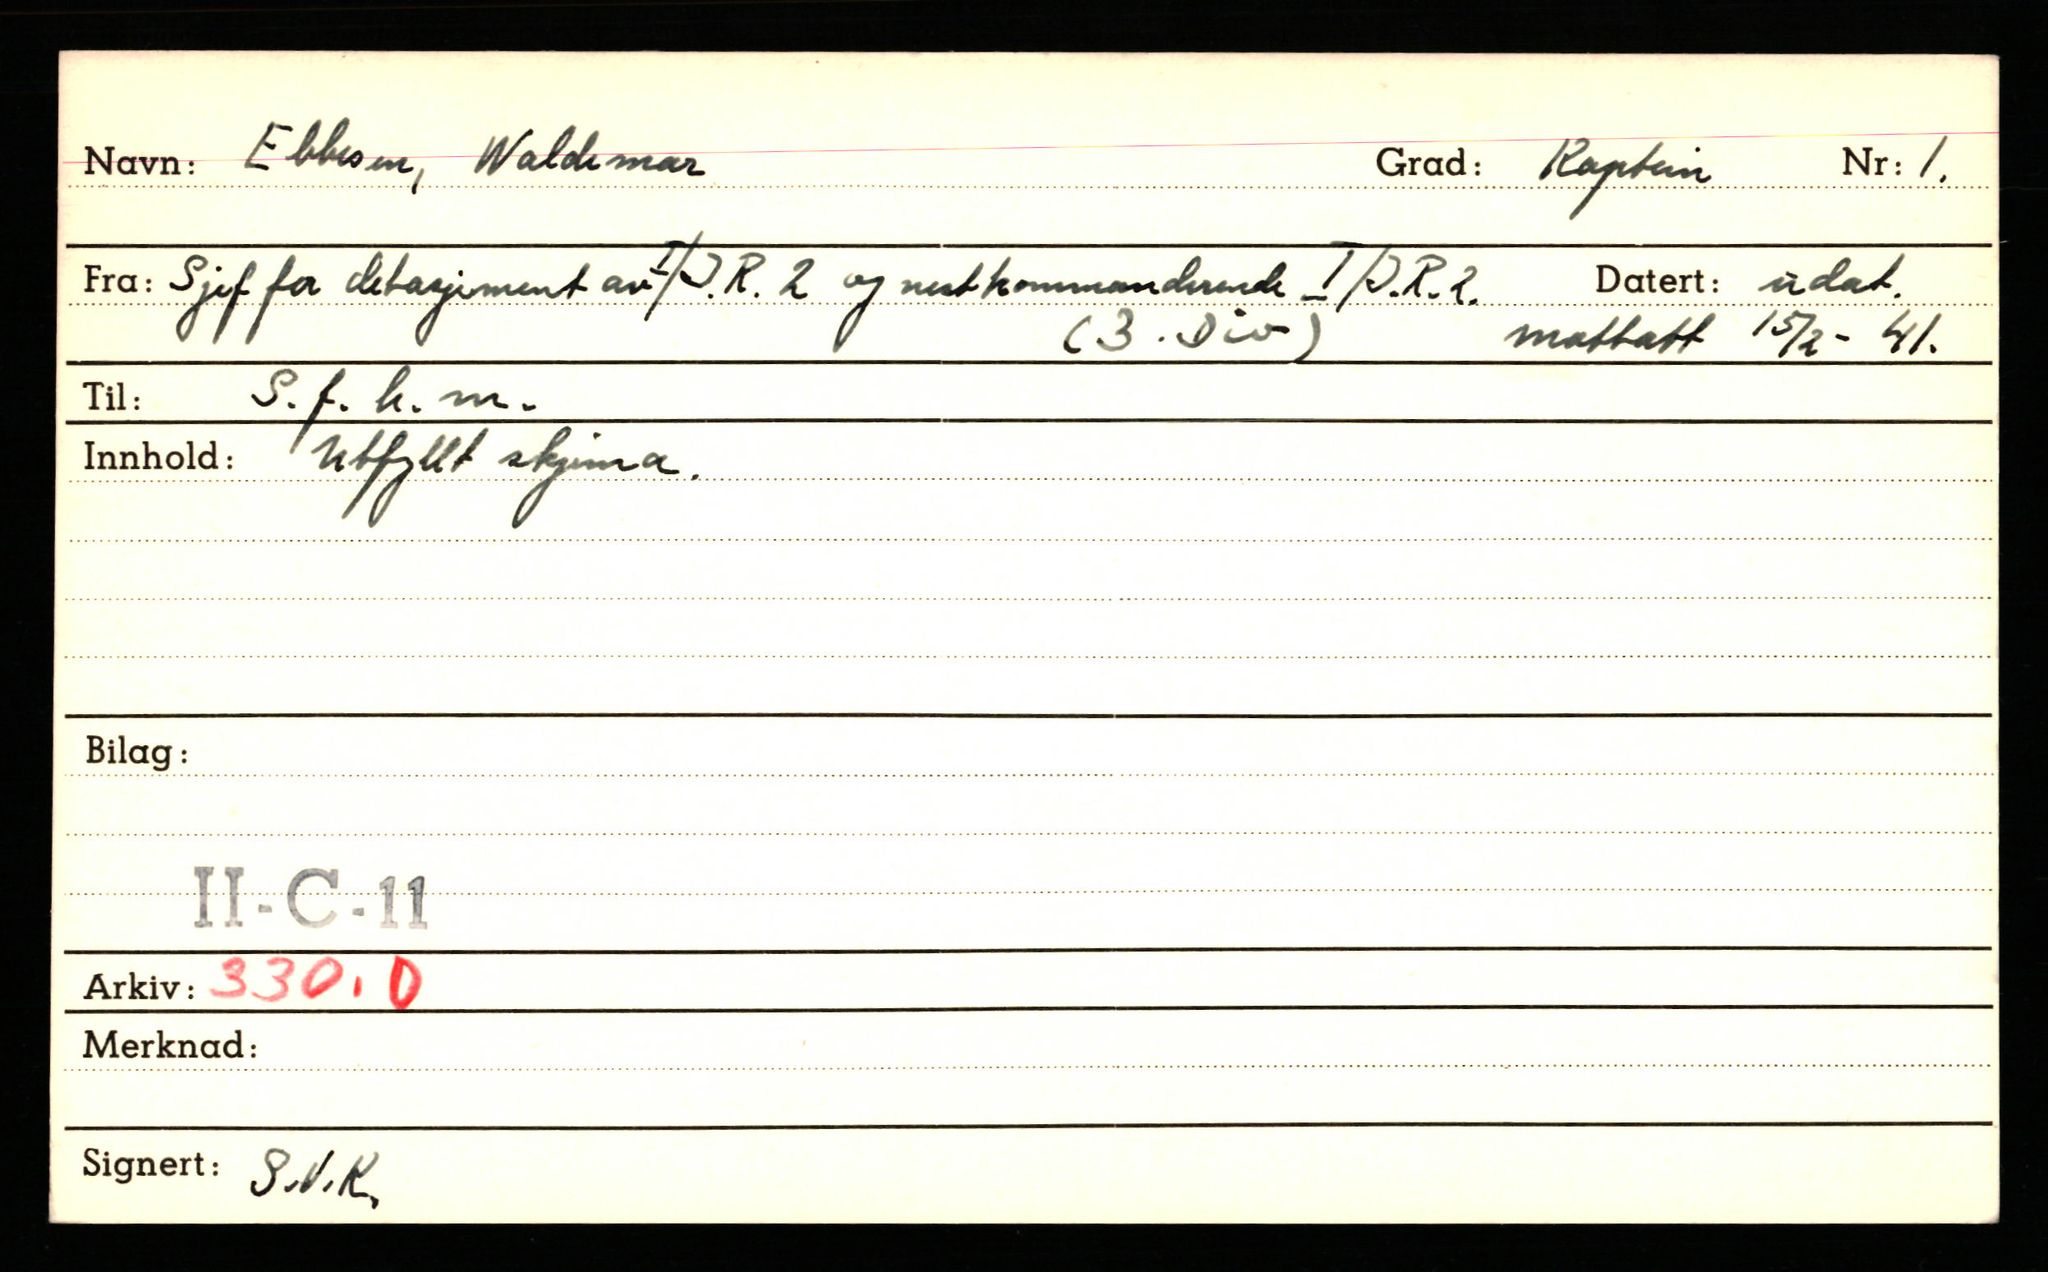 Navn: Ebbesen, Waldemar Grad: Kaptein Nr: 1.
Fra: Sjef for detasjement av I/J.R. 2 og nestkommanderende I/J.R. 2. Datert: udat.
(3. Div) mottatt 15/2-41.
Til: S.f.h.m.
Innhold: Utfyllt skjema.
Bilag:
II-C-11
Arkiv: 330.0
Merknad:
Signert: S.V.K.